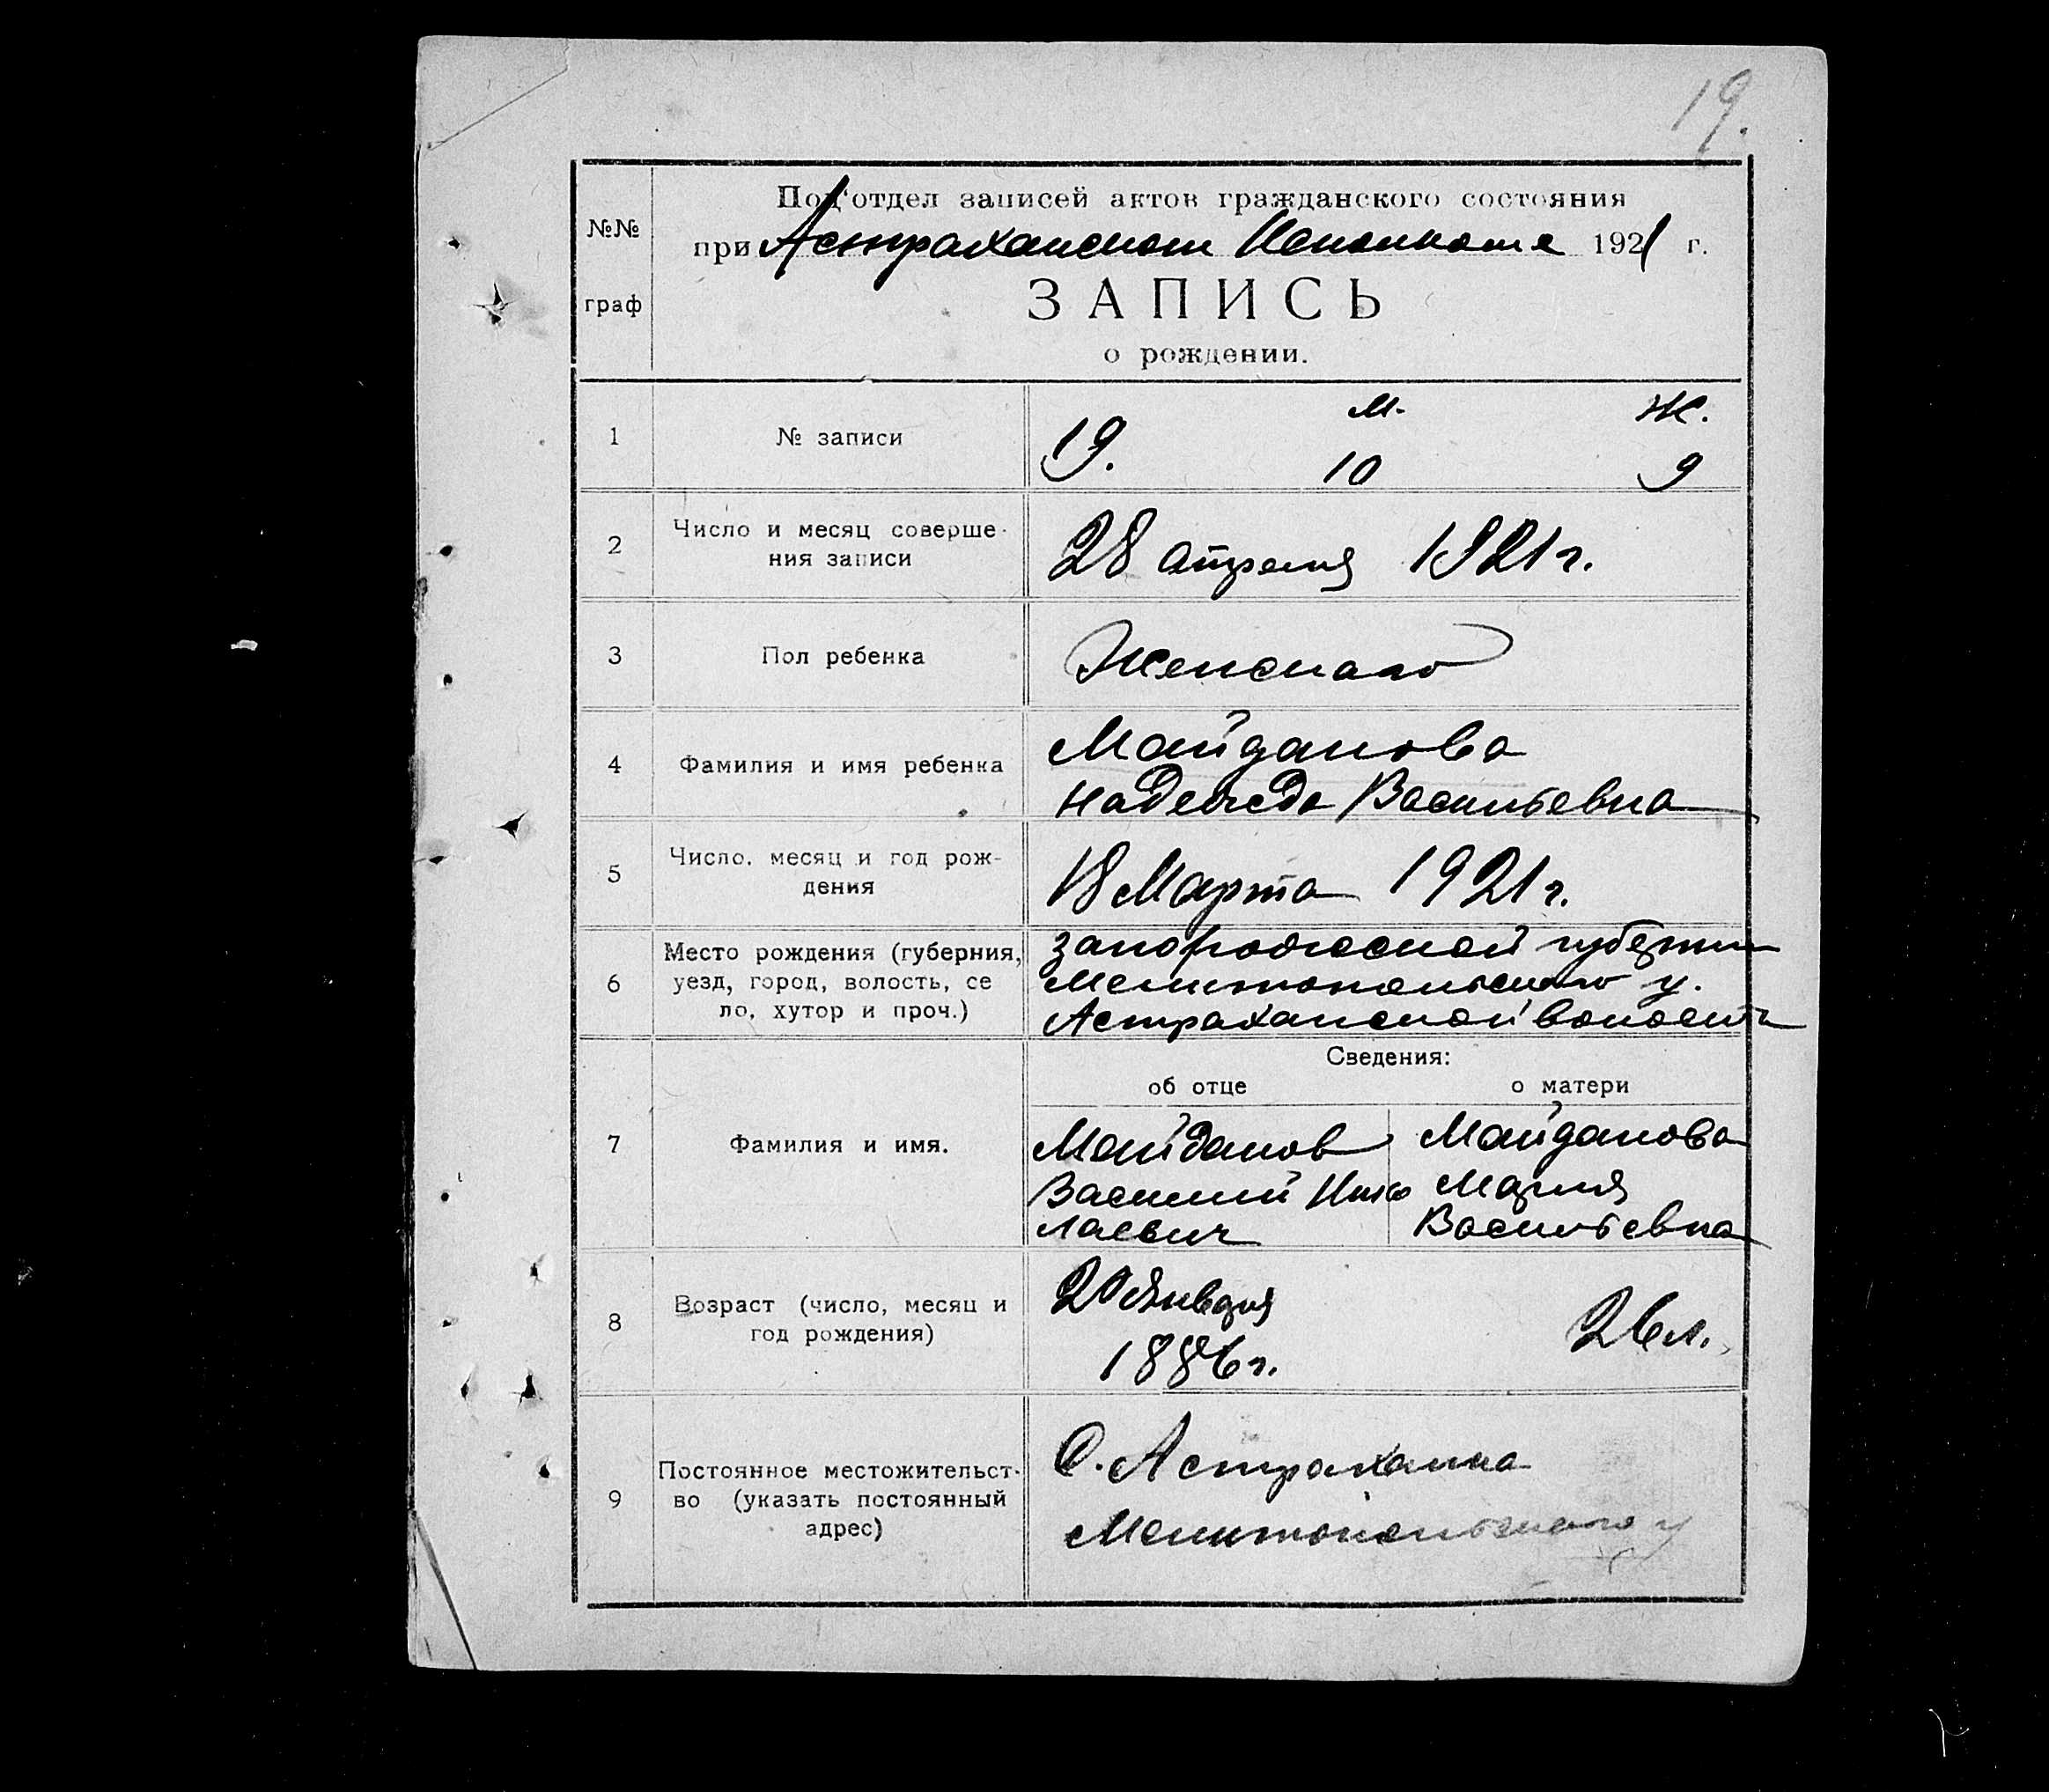 19.
Под'отдел записей актов гражданского состояния
при Астраханском Исполкоме 1921 г.
№№
граф
ЗАПИСЬ
о рождении.
1 № записи 19. м. 10 ж. 9
2 Число и месяц соверше-
ния записи 28 апреля 1921 г.
3 Пол ребенка Женскаго
4 Фамилия и имя ребенка Майданова
Надежда Васильевна
5 Число, месяц и год рож-
дения 18 Марта 1921 г.
6 Место рождения (губерния,
уезд, город, волость, се
ло, хутор и проч.)
Запорожской губернии
Мелитопольскаго у.
Астраханской волости
Сведения:
об отце о матери
7 Фамилия и имя.
Майданов
Василий Нико
лаевич
Майданова
Мария
Васильевна
8 Возраст (число, месяц и
год рождения)
20 Января
1886 г.
26 л.
9 Постоянное местожительст-
во (указать постоянный
адрес)
С. Астраханка
Мелитопольскаго у